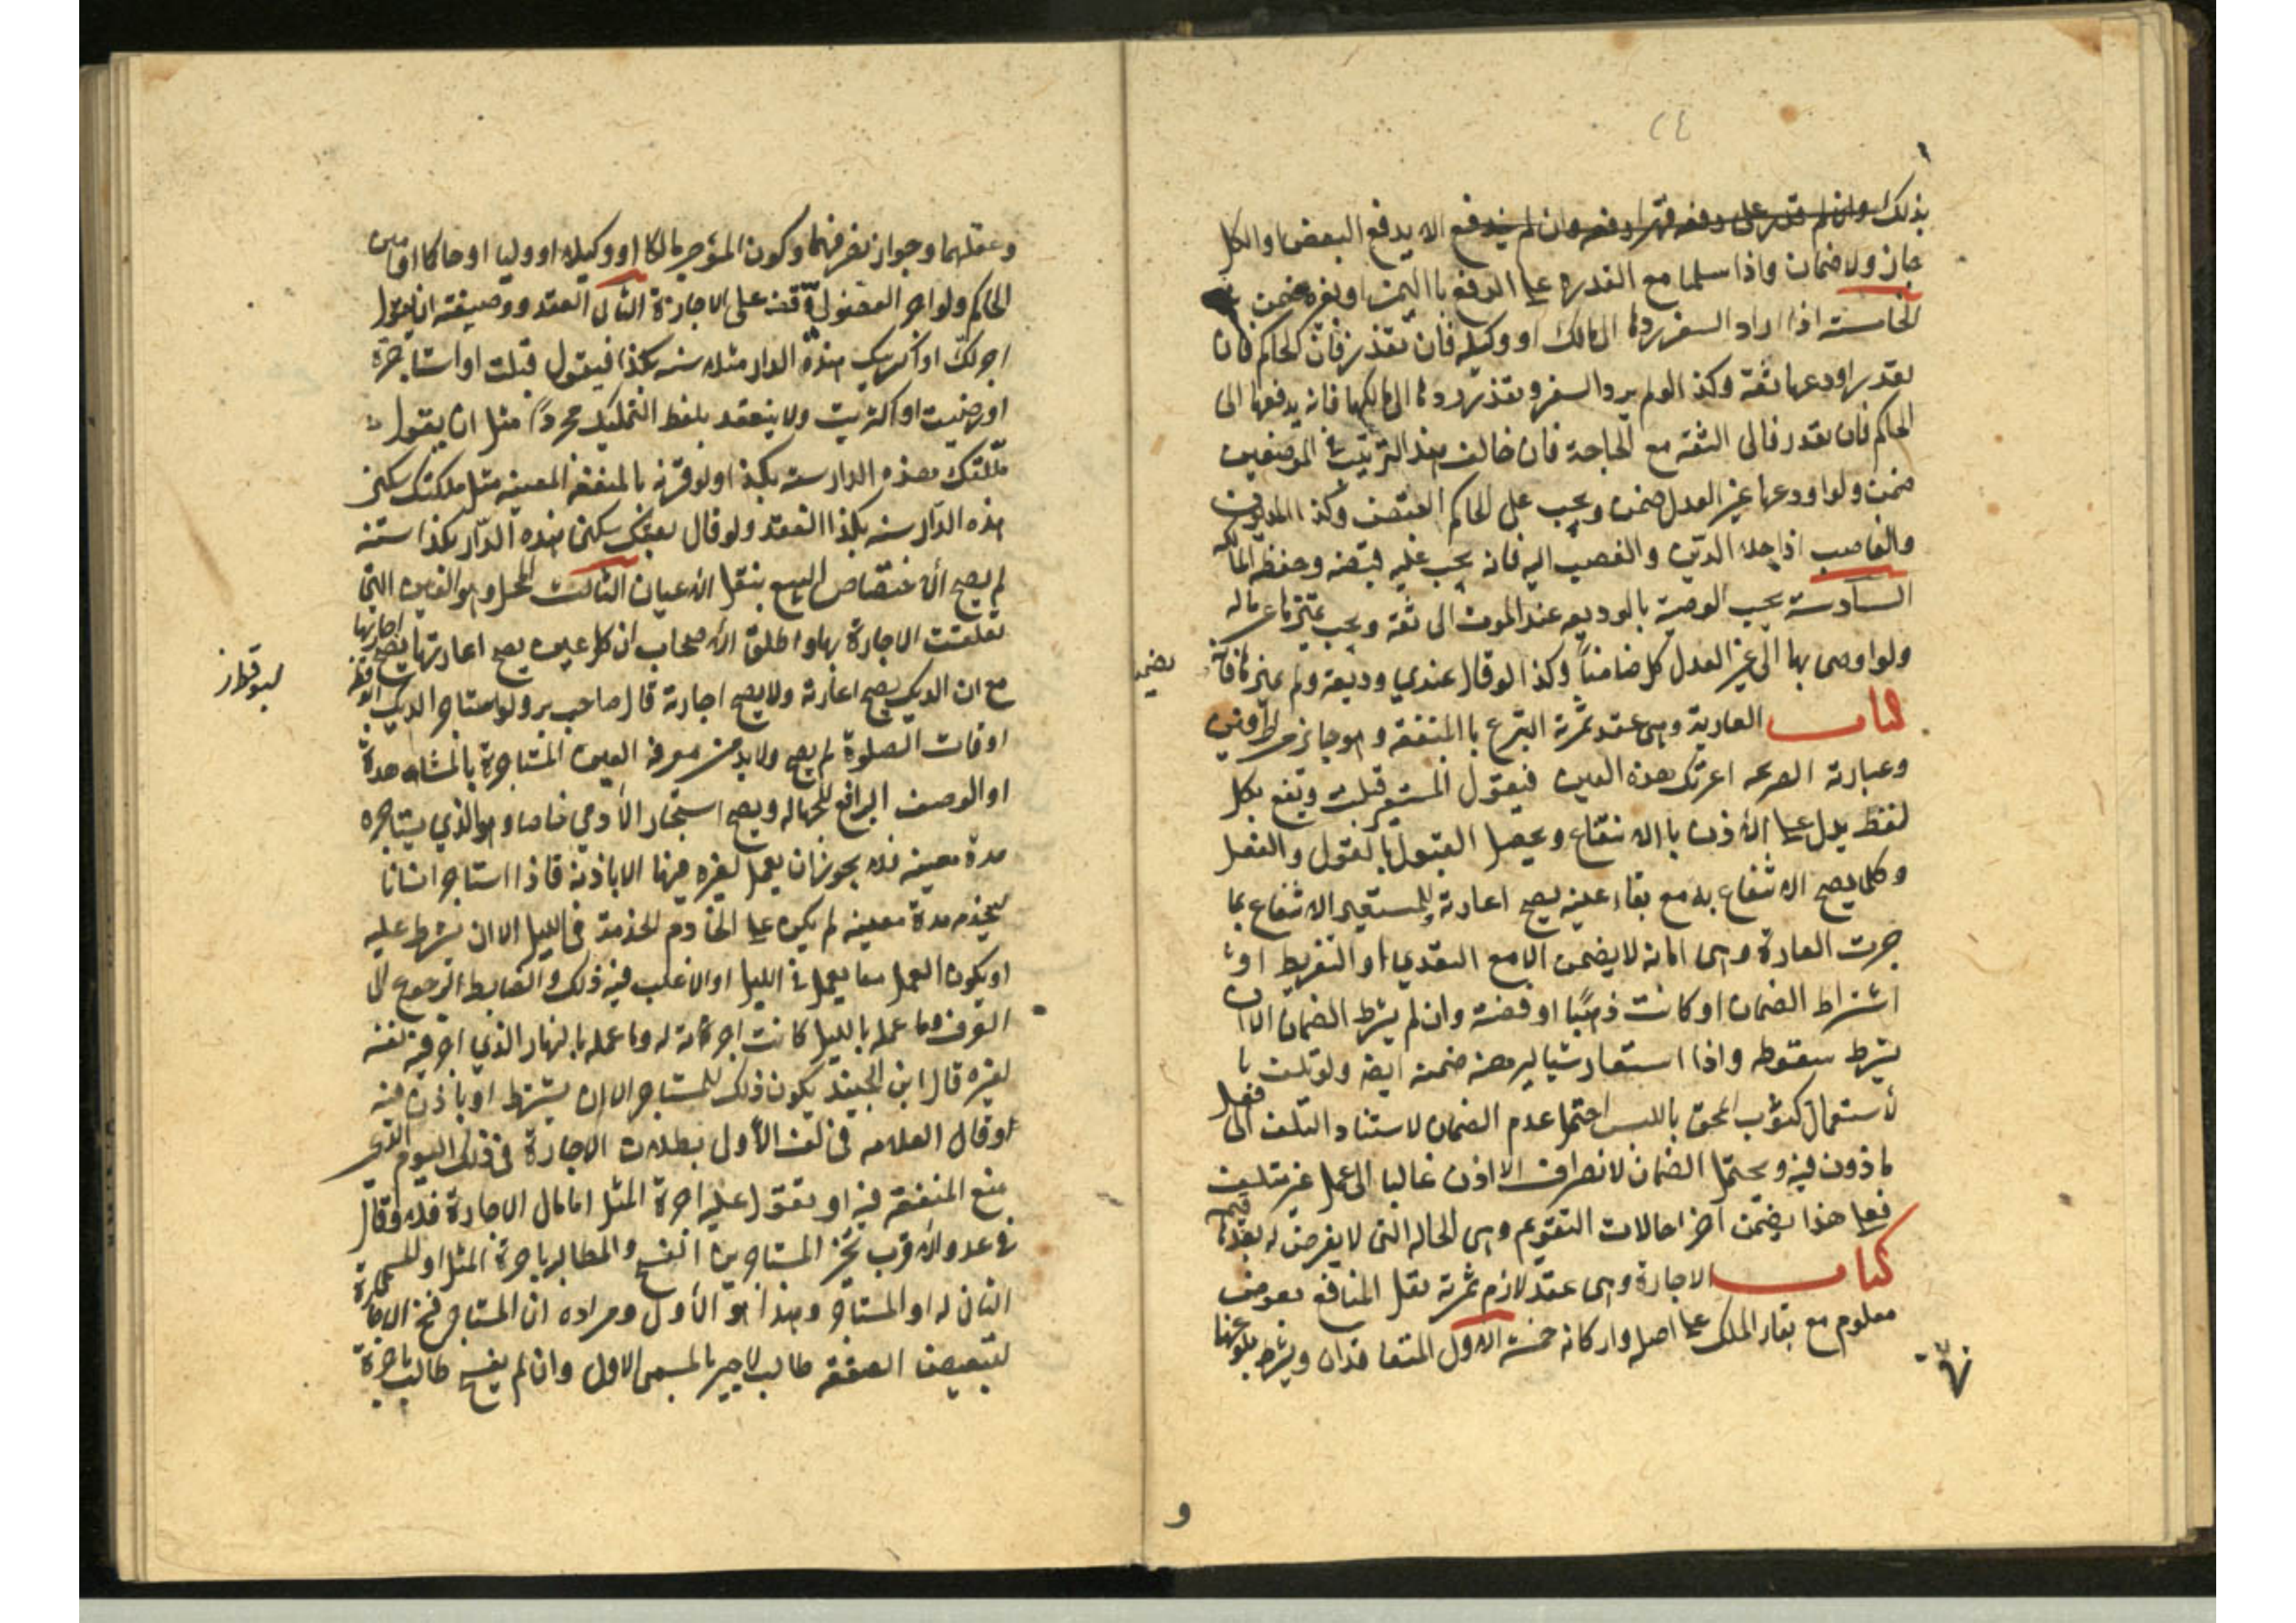 ٢٤
بذلك وان لم قدر على دفعه قهرا دفعه وان لم يندفع الا بدفع البعض او الكل
جاز ولا ضمان واذا سلما مع القدره على الدفع با اليمين او بغيره ضمن
الخامسته اذا اراد السفر ردها الى مالك او وكيله فان تعذر فان الحاكم فان
تعذر اودعها ثقة وكذا لو لم يرد السفر وتعذر ردها الى مالكها فانه يدفعها الى
الحاكم فان تعذر فالى الثقه مع الحاجة فان خالف هذا الترتيب في الموضعين
ضمن ولو اودعها غير العدل ضمن ويجب على الحاكم القبض وكذا المديون
والغاصب اذا حلا الدين والغصب اليه فانه يجب عليه قبضه وحفظه لمالكه
السادسته يجب الوصية بالوديعه عند الموت الى ثقة ويجب تميزها عن ماله
ولو اوصى بها الى غير العدل كان ضامناً وكذا لو قال عندي وديعة ولم يميزها فانه
يضمن
كتاب العارية وهى عقد ثمرته التبرع با المنفعة وهو جايز من الطرفين
وعبارته الصريحه اعرتك هذه العين فيقول المستعير قبلت ويقع بكل
لفظ يدل على الأذن با الانتفاع ويحصل القبول با لقول والفعل
وكلما يصح الانتفاع به مع بقاء عينه يصح اعارته وللمستعير الانتفاع بما
جرت العادة وهى امانه لا يضمن الا مع التعدي او التفريط او
اشتراط الضمان او كانت ذهبًا او فضة وان لم يشرط الضمان الا ان
يشرط سقوطه واذا استعار شيا ليرهنه ضمنه ايضه ولو تلفت با
لأستعمال كثوب انمحق باللبس احتمل عدم الضمان لاستناد التلف الى فعل
ماذون فيه ويحتمل الضمان لانصراف الاذن غالبا الى عمل غير متلف
فعلى هذا يضمن آخر احالات التقويم وهى الحاله التى لا يفرض له بعدها قيمه
كتاب الاجارة وهى عقد لازم ثمرته نقل المنافع بعوض
معلوم مع بقاء الملك على اصله واركانه خمسة الاول المتعاقدان ويشترط بلوغهما
و
وعقلهما وجواز تصرفهما وكون المؤجر مالكا او وكيلا او وليا او حاكما او امين
الحاكم ولو اجر الفضولى وقف على الاجازة الثانى العقد وصيغته ان يقول
اجرتك او اكريتك هذه الدار مثلا سنه بكذا فيقول قبلت او استاجرة
او رضيت او اكتريت ولا ينعقد بلفظ التمليك مجرداً مثل ان يقول
ملّكتك هذه الدار سنه بكذا ولو قرنه بالمنفعه المعينه مثل ملكتك سكنى
هذه الدار سنه بكذا انعقد ولو قال بعتك سكنى هذه الدّار بكذا سنه
لم يصح لأختصاص البيع بنقل الأعيان الثالث المحل وهو العين التى
تعلقت الاجارة بها واطلق الأصحاب ان كل عين يصح اعارتها يصح اجارتها
مع ان الديك يصح اعارته ولا يصح اجارته قال صاحب ير ولو استاجر الديك ليوقظه
ليوقظه
اوقات الصلوة لم يصح ولا بد من معرفة العين المستاجرة بالمشاهدة
او الوصف الرافع للجهاله ويصح استيجار الأدمي خاصا وهو الذي يستاجره
مدة معينه فلا يجوز ان يعمل لغيره فيها الا باذنه فاذا استاجر انسانا
ليخدمه مدة معينه لم يكن على الخادم الخدمة في الليل الا ان يشرط عليه
او يكون العمل مما يعمل في الليل او الاغلب فيه ذلك والضابط الرجوع الى
العرف وما عمله بالليل كانت اجرته له وما عمله بالنهار الذي اجر فيه نفسه
لغيره قال ابن الجنيد يكون ذلك للمستاجر الا ان يشترط او ياذن فيه
وقال العلامه في لف الأول بطلان الاجارة في ذلك اليوم الذي
منع المنفعة فيه او يتقول عليه اجرة المثل اما مال الاجارة فلا وقال
في عد والأقرب تخير المستاجر بين الفسخ والمطالبه باجرة المثل او المسمى
الثان له او المستاجر وهذا هو الأول ومراده ان المستاجر فسخ الاجارة
لتبعيض الصفقه طالب الاجير بالمسمى الاول وان لم يفسخ طالب باجرة